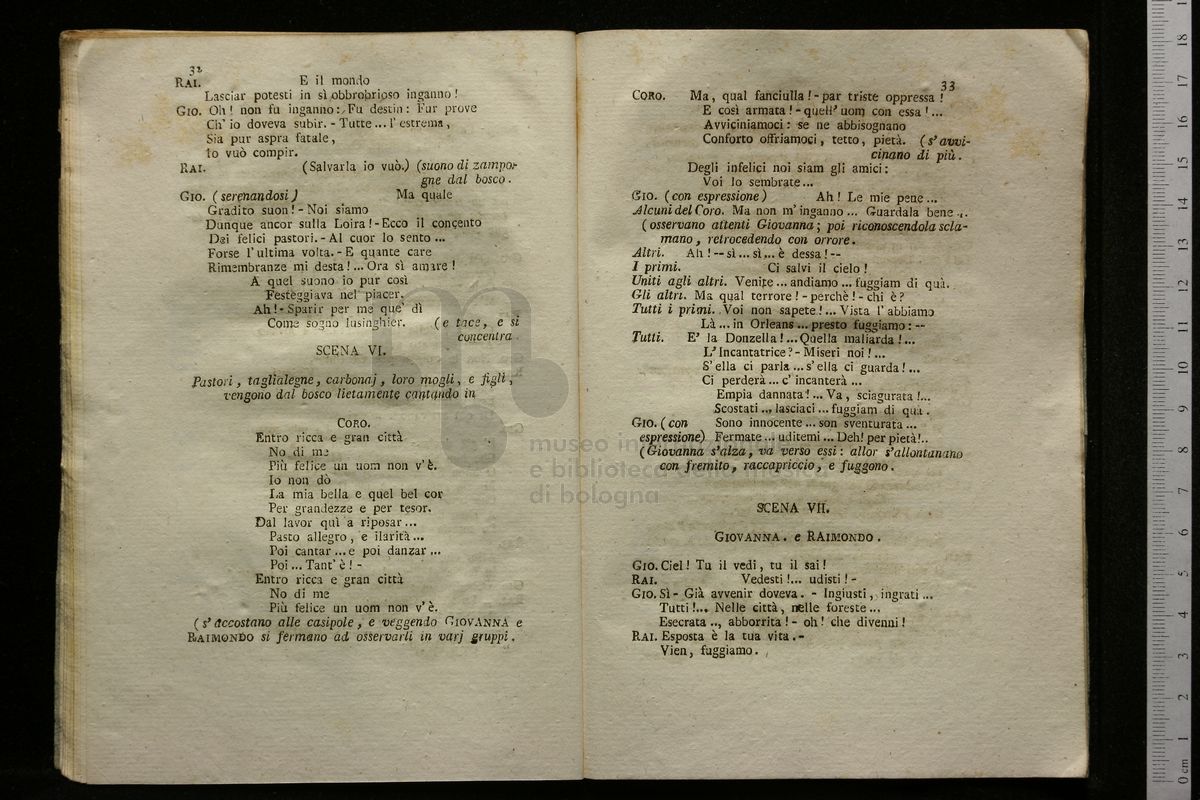 32
RAI. E il mondo
Lasciar potesti in sì obbrobrioso inganno!
GIO. Oh! non fu inganno: Fu destin: Fur prove
Ch' io doveva subir. - Tutte ... l' estrema,
Sia pur aspra fatale,
Io vuò compir.
RAI. (Salvarla io vuò.) (suono di zampo-
gne dal bosco.
GIO. (serenandosi) Ma quale
Gradito suon! - Noi siamo
Dunque ancor sulla Loira! - Ecco il concento
Dei felici pastori. - Al cuor lo sento ...
Forse l' ultima volta. - E quante care
Rimembranze mi desta! ... Ora sì amare!
A quel suono io pur così
Festeggiava nel piacer.
Ah! - Sparir per me que' dì
Come sogno lusinghier. (e tace, e si
concentra.
SCENA VI.
Pastori, taglialegne, carbonaj, loro mogli, e figli,
vengono dal bosco lietamente cantando in
CORO.
Entro ricca e gran città
No di me
Più felice un uom non v' è.
Io non dò
La mia bella e quel bel cor
Per grandezze e per tesor.
Dal lavor quì a riposar ...
Pasto allegro, e ilarità ...
Poi cantar ... e poi danzar ...
Poi ... Tant' è! -
Entro ricca e gran città
No di me
Più felice un uom non v' è.
(s' accostano alle casipole, e veggendo GIOVANNA e
RAIMONDO si fermano ad osservarli in varj gruppi.
33
CORO. Ma, qual fanciulla! - par triste oppressa!
E così armata! - quell' uom con essa! ...
Avviciniamoci: se ne abbisognano
Conforto offriamoci, tetto, pietà. (s' avvi-
cinano di più.
Degli infelici noi siam gli amici:
Voi lo sembrate ...
GIO. (con espressione) Ah! Le mie pene ...
Alcuni del Coro. Ma non m' inganno ... Guardala bene ...
(osservano attenti Giovanna; poi riconoscendola scla-
mano, retrocedendo con orrore.
Altri. Ah! -- sì ... sì ... è dessa! --
I primi. Ci salvi il cielo!
Uniti agli altri. Venite ... andiamo ... fuggiam di quà.
Gli altri. Ma qual terrore! - perchè! - chi è?
Tutti i primi. Voi non sapete! ... Vista l' abbiamo
Là ... in Orleans ... presto fuggiamo: --
Tutti. E' la Donzella! ... Quella maliarda! ...
L' Incantatrice? - Miseri noi! ...
S' ella ci parla ... s' ella ci guarda! ...
Ci perderà ... c' incanterà ...
Empia dannata! ... Va, sciagurata! ...
Scostati ... lasciaci ... fuggiam di quà.
GIO. (con Sono innocente ... son sventurata ...
espressione) Fermate ... uditemi ... Deh! per pietà!..
(Giovanna s'alza, va verso essi: allor s'allontanano
con fremito, raccapriccio, e fuggono.
SCENA VII.
GIOVANNA. e RAIMONDO.
GIO. Ciel! Tu il vedi, tu il sai!
RAI. Vedesti!... udisti! -
GIO. Sì - Già avvenir doveva. - Ingiusti, ingrati ...
Tutti!... Nelle città, nelle foreste ...
Esecrata .., abborrita! - oh! che divenni!
RAI. Esposta è la tua vita. -
Vien, fuggiamo.
museo internazionale
e biblioteca della musica
di bologna
0 cm 1 2 3 4 5 6 7 8 9 10 11 12 13 14 15 16 17 18